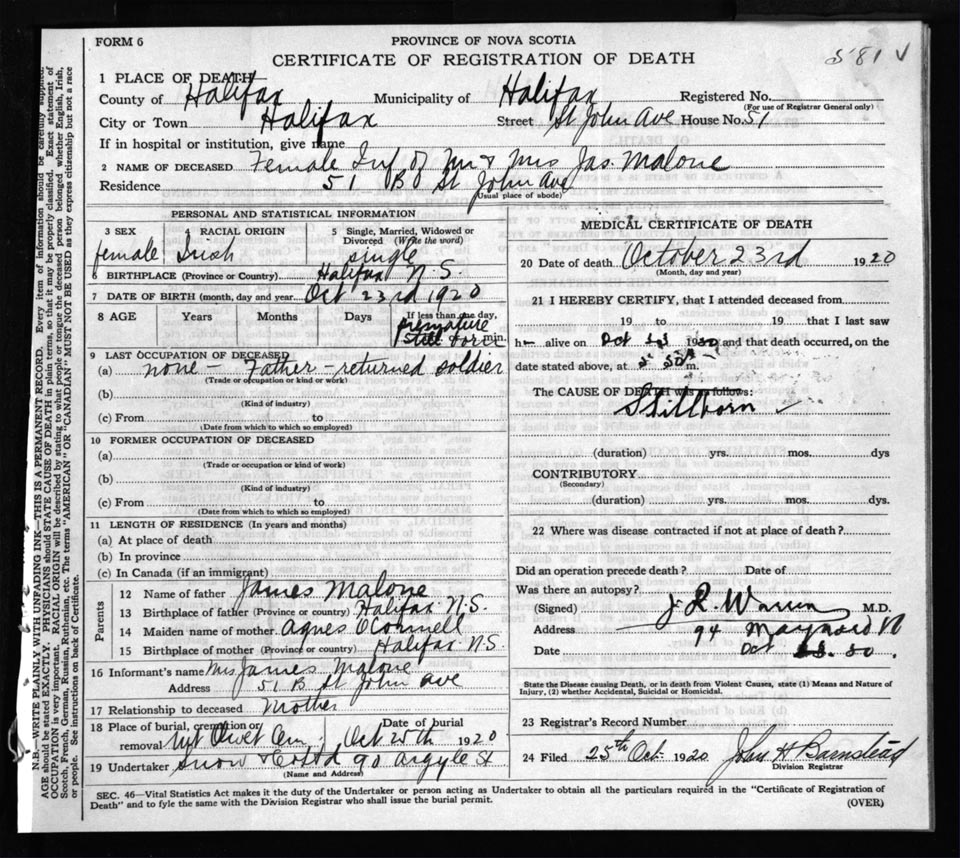 FORM 6
PROVINCE OF NOVA SCOTIA
581 ✓
CERTIFICATE OF REGISTRATION OF DEATH
1 PLACE OF DEATH
County of Halifax Municipality of Halifax Registered No.
(For use of Registrar General only)
City or Town Halifax Street St John Ave House No. 51
If in hospital or institution, give name
2 NAME OF DECEASED Female Inf of Mr & Mrs Jas. Malone
Residence 51 B St John Ave
(Usual place of abode)
PERSONAL AND STATISTICAL INFORMATION
3 SEX 4 RACIAL ORIGIN 5 Single, Married, Widowed or Divorced (Write the word)
female Irish single
6 BIRTHPLACE (Province or Country) Halifax N.S.
7 DATE OF BIRTH (month, day and year) Oct 23rd 1920
8 AGE Years Months Days If less than one day,
premature
Still born min.
9 LAST OCCUPATION OF DECEASED
(a) none – Father – returned soldier
(Trade or occupation or kind of work)
(b)
(Kind of industry)
(c) From to
(Date from which to which so employed)
10 FORMER OCCUPATION OF DECEASED
(a)
(Trade or occupation or kind of work)
(b)
(Kind of industry)
(c) From to
(Date from which to which so employed)
11 LENGTH OF RESIDENCE (In years and months)
(a) At place of death
(b) In province
(c) In Canada (if an immigrant)
Parents
12 Name of father James Malone
13 Birthplace of father (Province or country) Halifax N.S.
14 Maiden name of mother Agnes O'Connell
15 Birthplace of mother (Province or country) Halifax N.S.
16 Informant's name Mrs James Malone
Address 51 B St John Ave
17 Relationship to deceased Mother
18 Place of burial, cremation or removal Mt Olivet Cem Date of burial Oct 25th 1920
19 Undertaker Snow & Co Ltd 90 Argyle St
(Name and Address)
MEDICAL CERTIFICATE OF DEATH
20 Date of death October 23rd 1920
(Month, day and year)
21 I HEREBY CERTIFY, that I attended deceased from
19 to 19 that I last saw
h alive on Oct 19 and that death occurred, on the
date stated above, at m.
The CAUSE OF DEATH was as follows:
Stillborn ✓
(duration) yrs. mos. dys
CONTRIBUTORY
(Secondary)
(duration) yrs. mos. dys.
22 Where was disease contracted if not at place of death?
Did an operation precede death? Date of
Was there an autopsy?
(Signed) M.D.
Address 94
Date Oct
State the Disease causing Death, or in death from Violent Causes, state (1) Means and Nature of
Injury, (2) whether Accidental, Suicidal or Homicidal.
23 Registrar's Record Number
24 Filed 25th Oct. 1920 John H Barnstead
Division Registrar
SEC. 46—Vital Statistics Act makes it the duty of the Undertaker or person acting as Undertaker to obtain all the particulars required in the "Certificate of Registration of
Death" and to fyle the same with the Division Registrar who shall issue the burial permit.
(OVER)
N.B.—WRITE PLAINLY WITH UNFADING INK—THIS IS A PERMANENT RECORD. Every item of information should be carefully supplied.
AGE should be stated EXACTLY. PHYSICIANS should STATE CAUSE OF DEATH in plain terms, so that it may be properly classified. Exact statement of
OCCUPATION is very important. RACIAL ORIGIN will be described by stating to what people or tongue the deceased person belonged whether English, Irish,
Scotch, French, German, Russian, Ruthenian, etc. The terms "AMERICAN" OR "CANADIAN" MUST NOT BE USED as they express citizenship but not a race
or people. See instructions on back of Certificate.